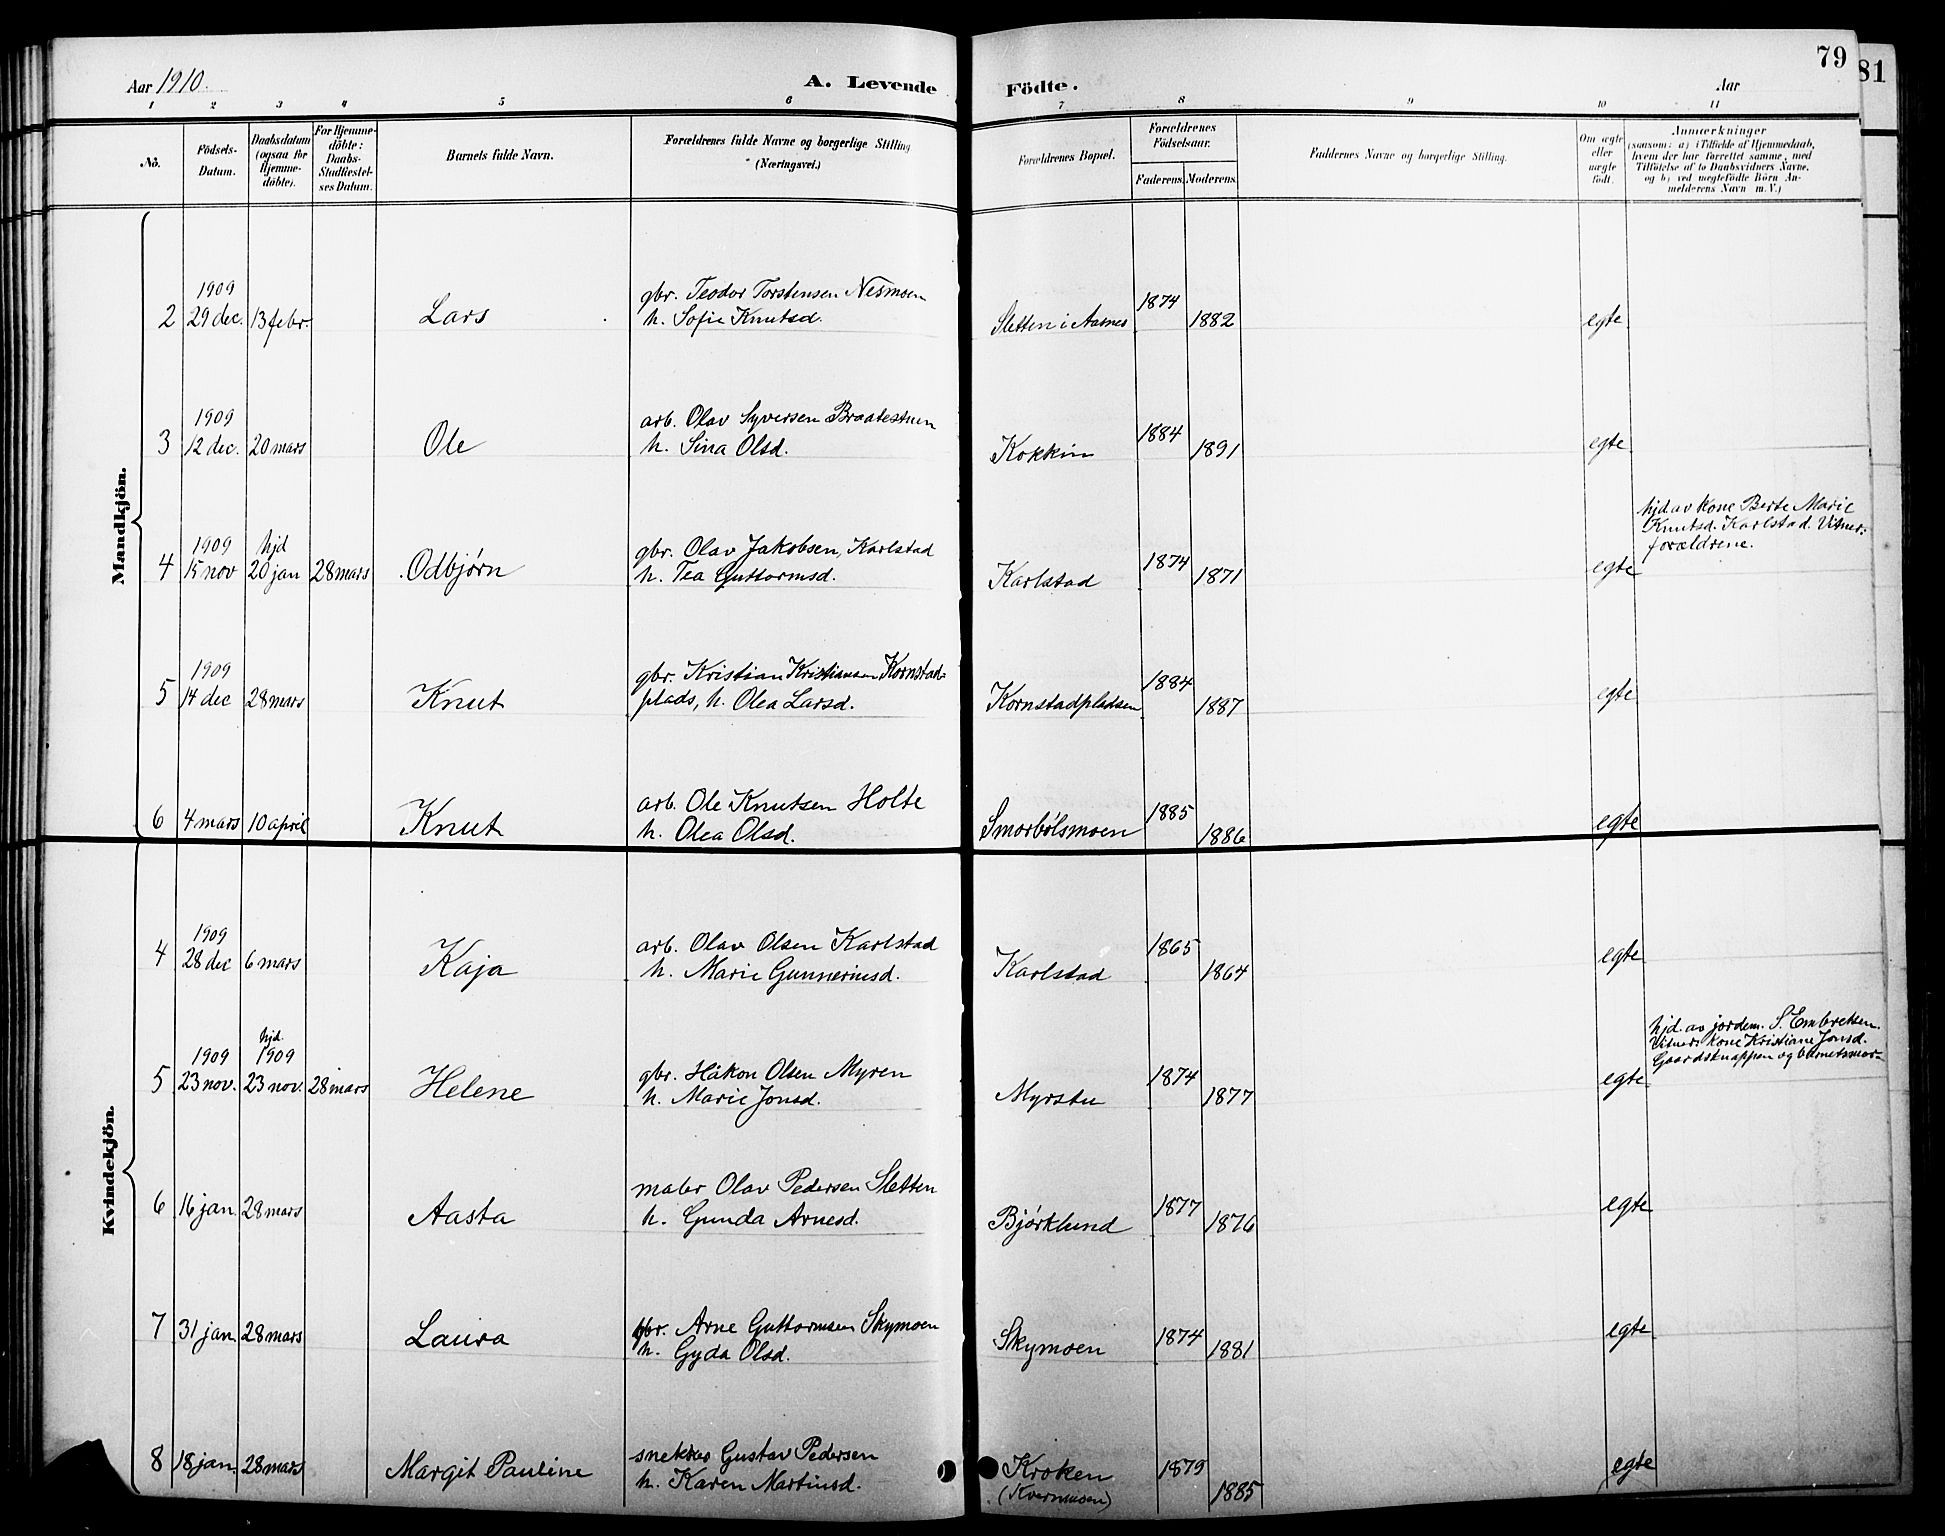 79
81
Aar 1910.
A. Levende Födte.
Aar
1 2 3 4 5 6 7 8 9 10 11
No.
Födsels-Datum.
Daabsdatum (ogsaa for Hjemme-döbte).
For Hjemme-döbte: Daabs-Stadfæstel-ses Datum.
Barnets fulde Navn.
Forældrenes fulde Navne og borgerlige Stilling (Næringsvei.)
Forældrenes Bopæl.
Forældrenes Födselsaar.
Faderens. Moderens.
Faddernes Navne og borgerlige Stilling.
Om ægte eller uægte födt.
Anmærkninger
(saasom: a) i Tilfælde af Hjemmedaab,
hvem der har forrettet samme, med
Tilföielse af to Daabsvidners Navne,
og b) ved uægtefödte Börn An-
melderens Navn m. V.)
Mandkjön.
1909
gbr. Teodor Torstensen Nesmoen
2 29 dec. 13 febr. Lars h. Sofie Knutsd. Sletten i Aasnes 1874 1882 egte
1909
arb. Olav Syversen Braatestuen
3 12 dec. 20 mars Ole h. Sina Olsd. Kokkin 1884 1891 egte
hjd. av kone Berte Marie
Knutsd. Karlstad. Vitner:
forældrene.
1909 hjd
gbr. Olav Jakobsen, Karlstad
4 15 nov 20 jan 28 mars Odbjørn h. Tea Guttormsd. Karlstad 1874 1871 egte
1909
gbr. Kristian Kristiansen Kornstad-
5 14 dec 28 mars Knut plads, h. Olea Larsd. Kornstadpladsen 1884 1887 egte
arb. Ole Knutsen Holte
6 4 mars 10 april Knut h. Olea Olsd. Smorbølsmoen 1885 1886 egte
Kvindekjön.
1909
arb. Olav Olsen Karlstad
4 28 dec 6 mars Kaja h. Marie Gunneriusd. Karlstad 1865 1864 egte
hjd. av jordem. S. Embretsen.
Vitner: kone Kristiane Jonsd.
Gaardsknappen og barnets mor
hjd.
1909 1909
gbr. Håkon Olsen Myren
5 23 nov. 23 nov. 28 mars Helene h. Marie Jonsd. Myrstu 1874 1877 egte
maler Olav Pedersen Sletten
6 16 jan. 28 mars Aasta h. Gunda Arnesd. Bjørklund 1877 1876 egte
gbr. Arne Guttormsen Skymoen
7 31 jan. 28 mars Laura h. Gyda Olsd. Skymoen 1874 1881 egte
snekker Gustav Pedersen
8 18 jan. 28 mars Margit Pauline h. Karen Martinsd. Kroken 1879 1885 egte
(Kvernmoen)